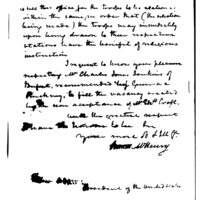 to fill this office for the troops to be stationed
within the same, in order that (the election
being made) the troops may immediately
upon being drawn to their respective
stations have the benefit of religious
instruction.
I request to know your pleasure
respecting Mr Charles Jones Jenkins of
recommended by General
Pinckney, to fill the vacancy created
by the non acceptance of Mr
With the greatest respect
I have the honour to be Sir
Your most
McHenry
President of the United States